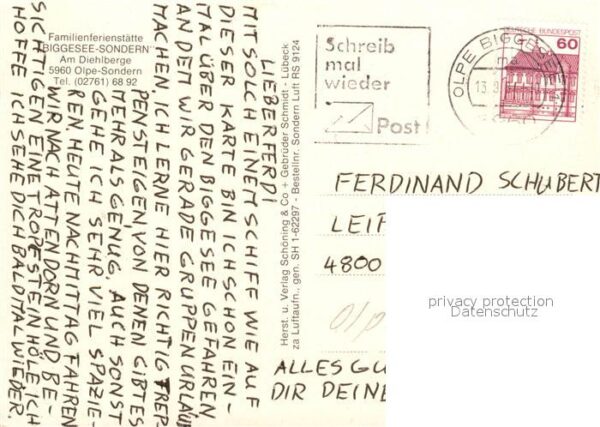 Familienferienstätte
"BIGGESEE-SONDERN"
Am Diehlberge
5960 Olpe-Sondern
Tel. (02761) 68 92
LIEBER FERDI
MIT SOLCH EINEM SCHIFF WIE AUF
DIESER KARTE BIN ICH SCHON EIN-
MAL ÜBER DEN BIGGESEE GEFAHREN
AN DEM WIR GERADE GRUPPENURLAUB
MACHEN. ICH LERNE HIER RICHTIG TREP-
PENSTEIGEN, VON DENEN GIBT ES
MEHR ALS GENUG. AUCH SONST
GEHE ICH SEHR VIEL SPAZIE-
REN. HEUTE NACHMITTAG FAHREN
WIR NACH ATTENDORN UND BE-
SICHTIGEN EINE TROPFSTEINHÖLE. ICH
HOFFE ICH SEHE DICH BALD MAL WIEDER.
Herst. u. Verlag Schöning & Co + Gebrüder Schmidt - Lübeck
za Luftaufn., gen. SH 1-62297 - Bestellnr. Sondern Luft RS 9124
Schreib
mal
wieder
Post
OLPE BIGGESEE
DEUTSCHE BUNDESPOST
60
FERDINAND SCHUBERT
LEI
4800
ALLES GU
DIR DEINE
privacy protection
Datenschutz